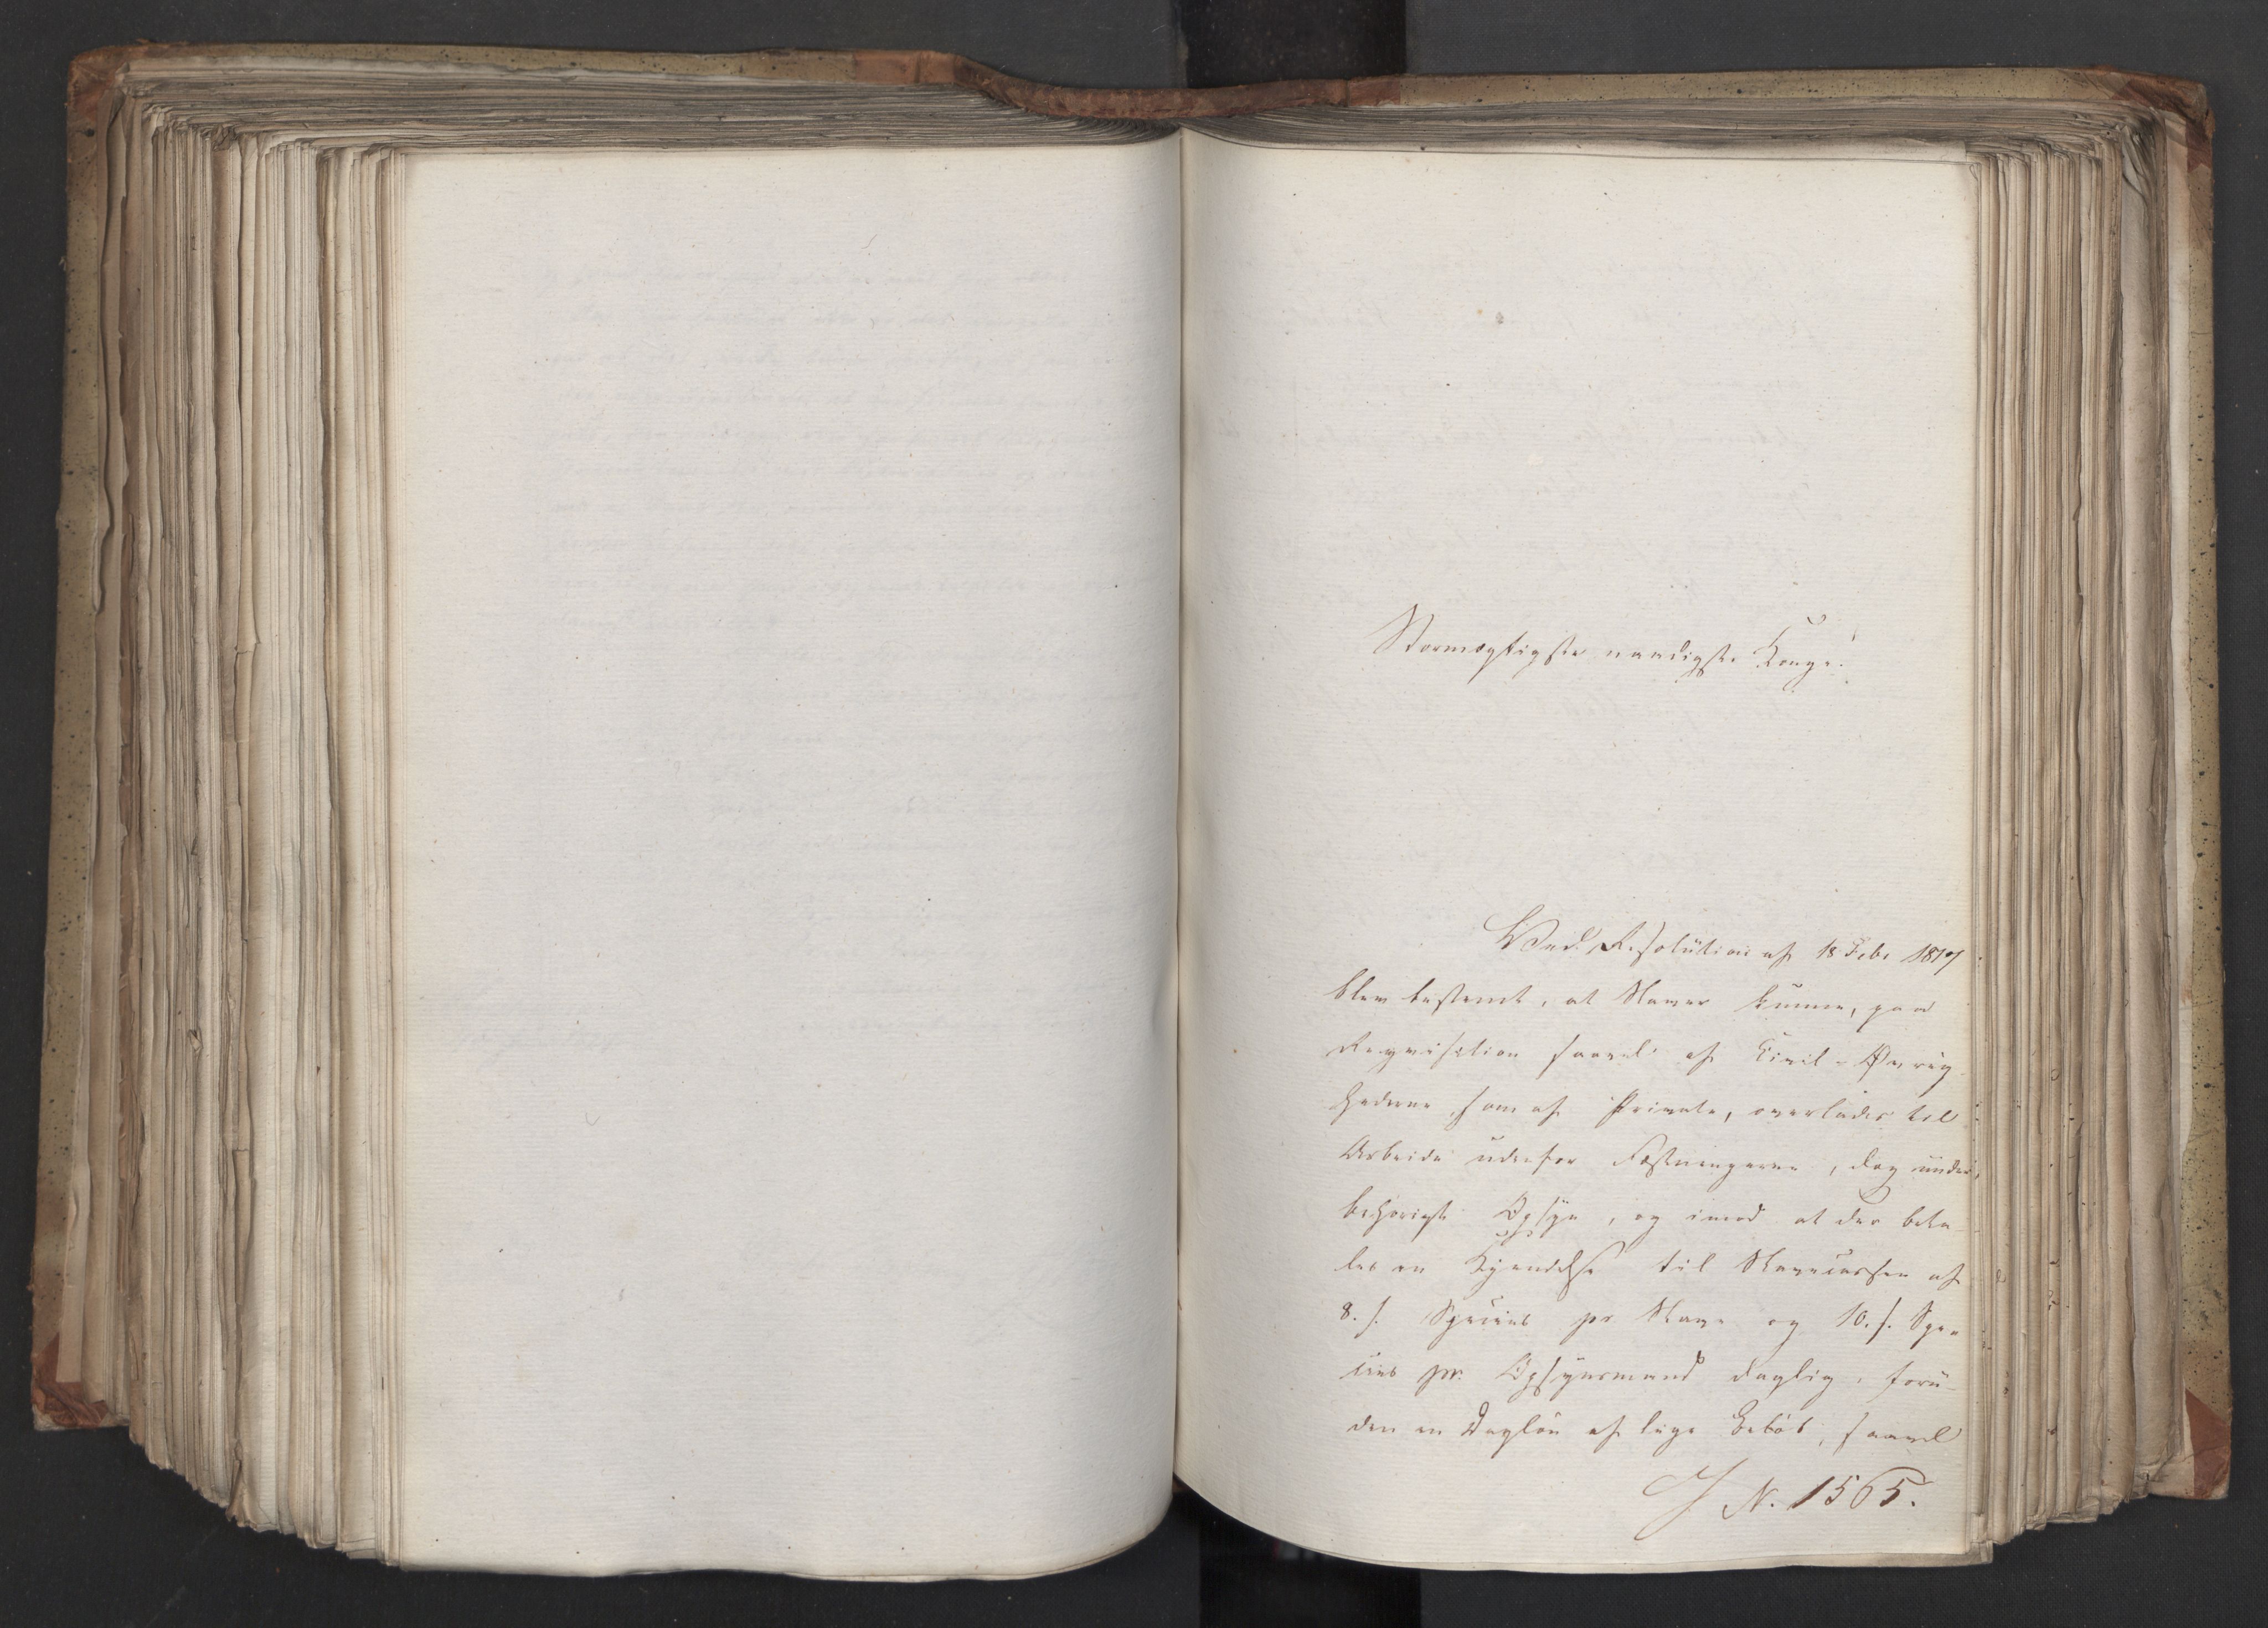 Stormægtigste naadigste Konge!
Ved Resolution af 18 Febr 1817
blev bestemt, at Slaver kunne, paa
Requisition saavel af Civil-Øvrig-
hederne, som af Private, overlades til
Arbeide udenfor Fæstningerne, dog under
behørigt Opsyn, og imod at der beta-
les en Kjendelse til Slavecassen af
8. s. Species pr Slave og 10. s. Spe-
cies pr. Opsynsmand daglig, foru-
den en Dagløn af lige Beløb, saavel
J N. 1565.